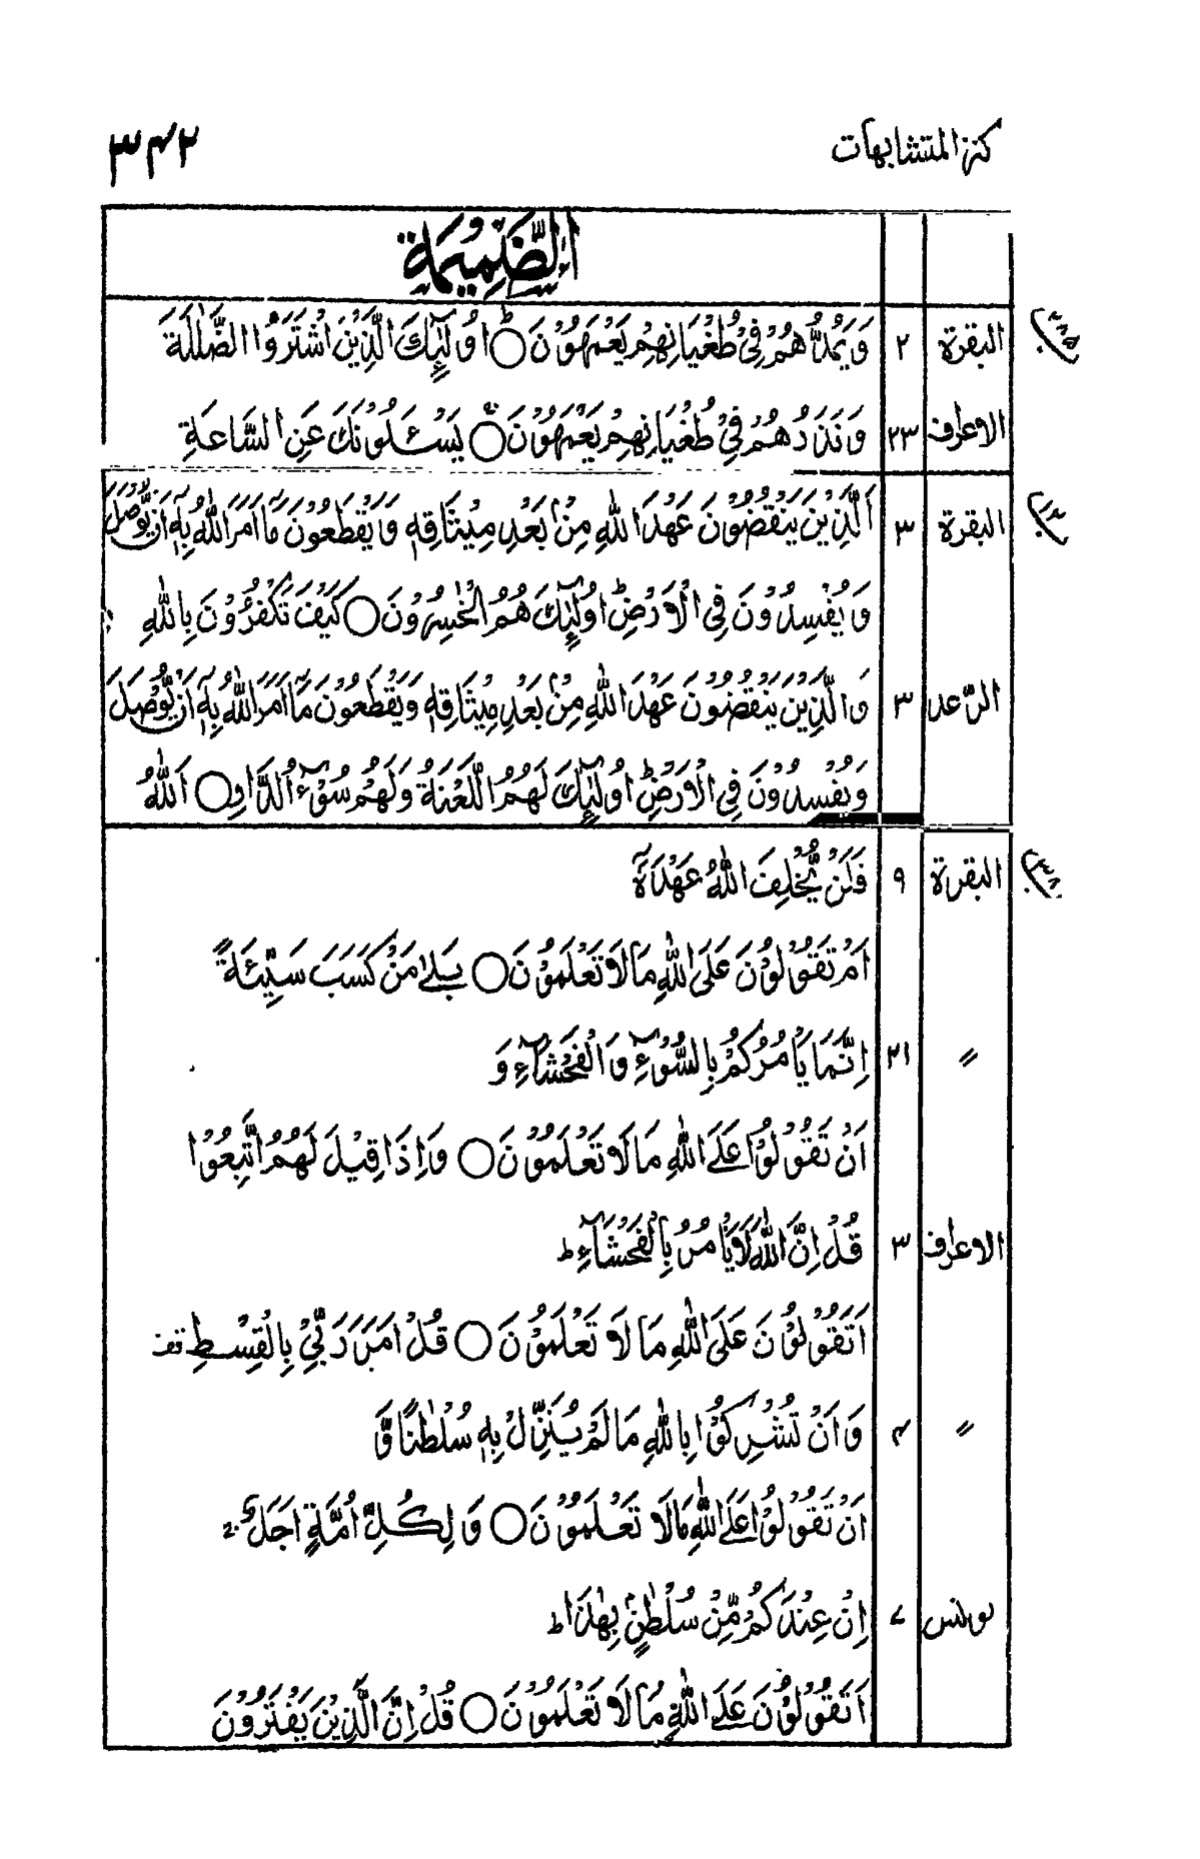 كنز المتشابهات ۳۴۲
اَلضَّمِيْمَةُ
البقرة ۲ وَيَمُدُّهُمْ فِيْ طُغْيَانِهِمْ يَعْمَهُوْنَ ○ اُولٰٓئِكَ الَّذِيْنَ اشْتَرَوُا الضَّلٰلَةَ
الاعراف ۲۳ وَنَذَرُهُمْ فِيْ طُغْيَانِهِمْ يَعْمَهُوْنَ ○ يَسْـَٔلُوْنَكَ عَنِ السَّاعَةِ
البقرة ۳ اَلَّذِيْنَ يَنْقُضُوْنَ عَهْدَ اللّٰهِ مِنْۢ بَعْدِ مِيْثَاقِهٖ وَيَقْطَعُوْنَ مَآ اَمَرَ اللّٰهُ بِهٖٓ اَنْ يُّوْصَلَ
وَيُفْسِدُوْنَ فِي الْاَرْضِ ؕ اُولٰٓئِكَ هُمُ الْخٰسِرُوْنَ ○ كَيْفَ تَكْفُرُوْنَ بِاللّٰهِ
الرّعد ۳ وَالَّذِيْنَ يَنْقُضُوْنَ عَهْدَ اللّٰهِ مِنْۢ بَعْدِ مِيْثَاقِهٖ وَيَقْطَعُوْنَ مَآ اَمَرَ اللّٰهُ بِهٖٓ اَنْ يُّوْصَلَ
وَيُفْسِدُوْنَ فِي الْاَرْضِ ۙ اُولٰٓئِكَ لَهُمُ اللَّعْنَةُ وَلَهُمْ سُوْٓءُ الدَّارِ ○ اَللّٰهُ
البقرة ۹ فَلَنْ يُّخْلِفَ اللّٰهُ عَهْدَهٗٓ
اَمْ تَقُوْلُوْنَ عَلَى اللّٰهِ مَا لَا تَعْلَمُوْنَ ○ بَلٰى مَنْ كَسَبَ سَيِّئَةً
〃 ۲۱ اِنَّمَا يَاْمُرُكُمْ بِالسُّوْٓءِ وَالْفَحْشَآءِ وَ
اَنْ تَقُوْلُوْا عَلَى اللّٰهِ مَا لَا تَعْلَمُوْنَ ○ وَاِذَا قِيْلَ لَهُمُ اتَّبِعُوْا
الاعراف ۳ قُلْ اِنَّ اللّٰهَ لَا يَاْمُرُ بِالْفَحْشَآءِ ؕ
اَتَقُوْلُوْنَ عَلَى اللّٰهِ مَا لَا تَعْلَمُوْنَ ○ قُلْ اَمَرَ رَبِّيْ بِالْقِسْطِ قف
〃 ۴ وَاَنْ تُشْرِكُوْا بِاللّٰهِ مَا لَمْ يُنَزِّلْ بِهٖ سُلْطٰنًا وَّ
اَنْ تَقُوْلُوْا عَلَى اللّٰهِ مَا لَا تَعْلَمُوْنَ ○ وَلِكُلِّ اُمَّةٍ اَجَلٌ ۚ
يونس ۷ اِنْ عِنْدَكُمْ مِّنْ سُلْطٰنٍۭ بِهٰذَا ؕ
اَتَقُوْلُوْنَ عَلَى اللّٰهِ مَا لَا تَعْلَمُوْنَ ○ قُلْ اِنَّ الَّذِيْنَ يَفْتَرُوْنَ